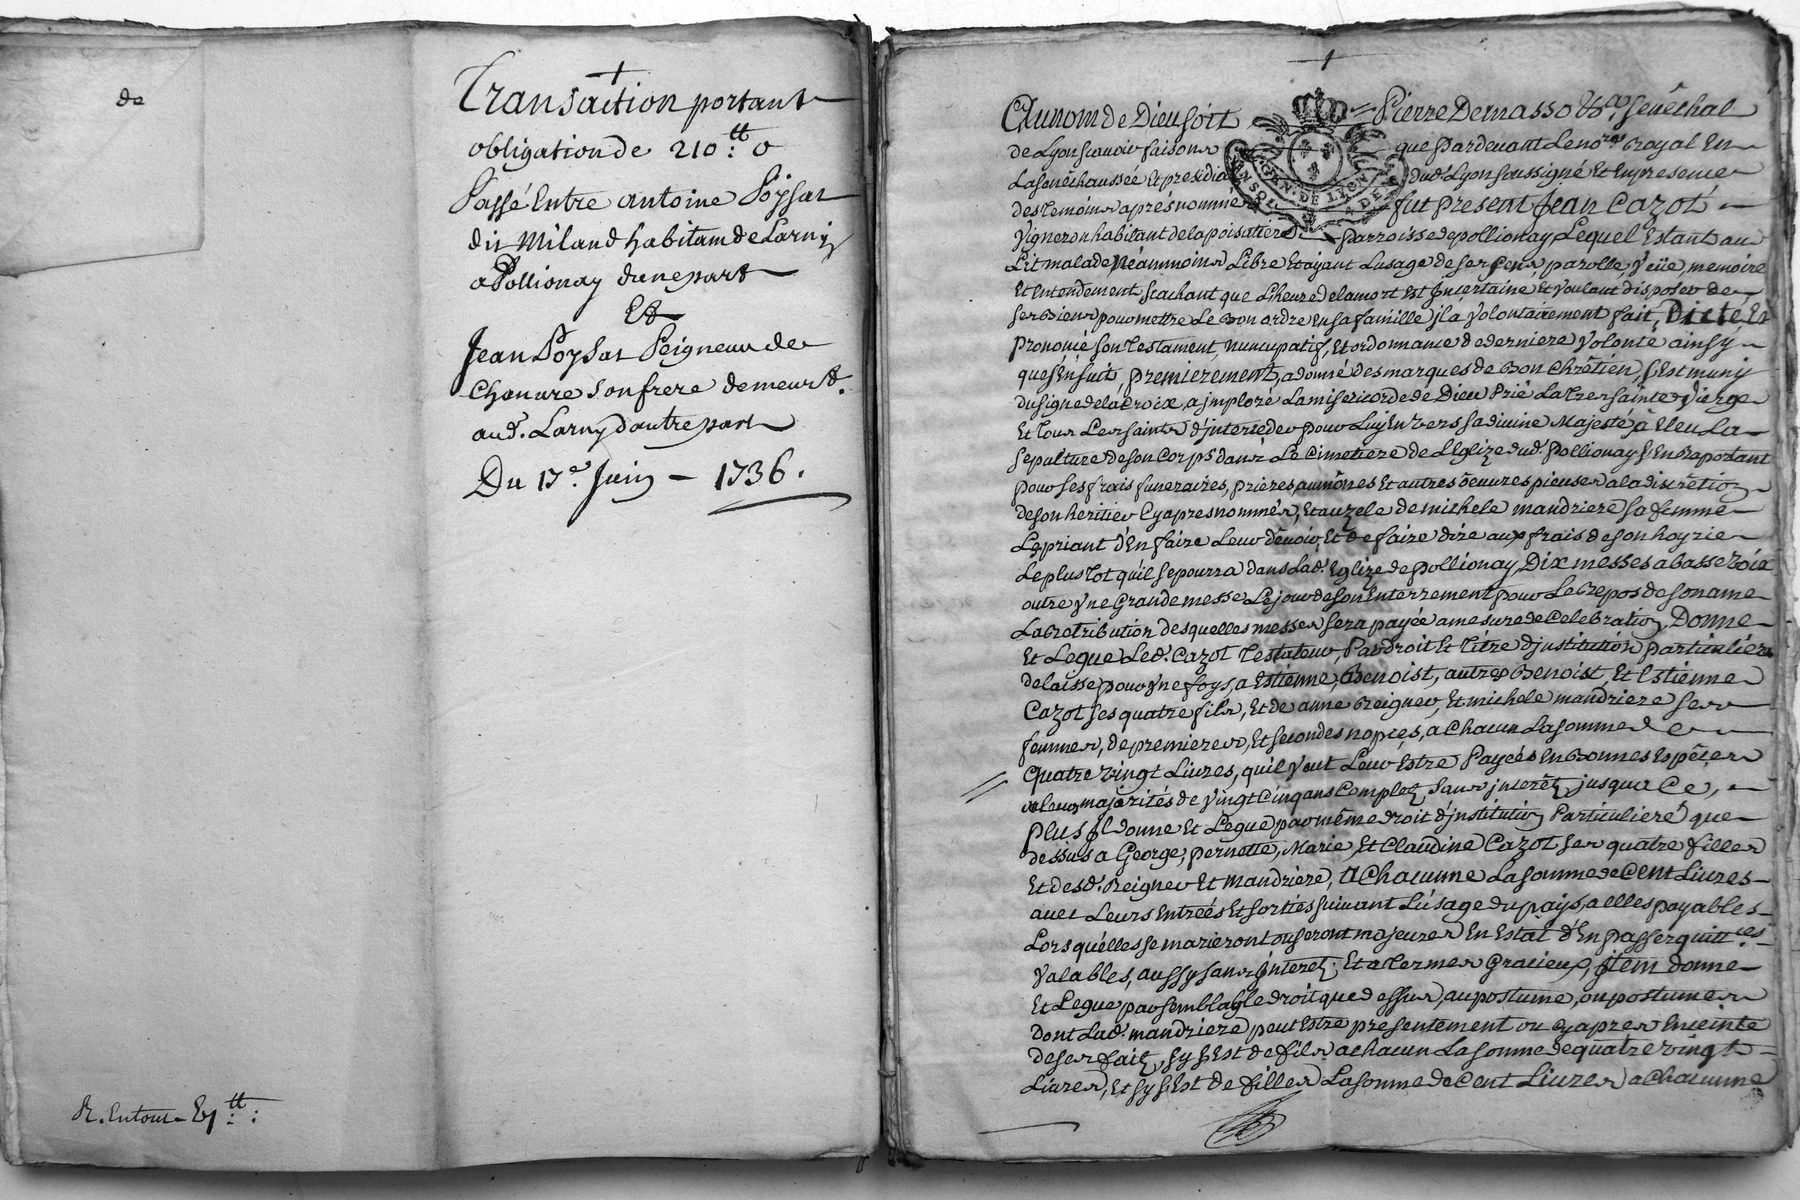 de
Transaction portant
obligation de 210:tt 0
Passé Entre antoine Poÿsat
dit Miland habitam de Larny
a Pollionay dune part
Et
Jean Poysat Peigneur de
Chanvre son frere demeurt.
aud. Larny d'autre part
Du 17e. Juin - 1736.
R. Entout
Au nom de Dieu soit Pierre De masso Seneĉhal
de Lyon scavoir faisons que Pardevant Le nore. Royal En
La senêchaussée Et presidial dud. Lyon soussigné Et En presence
des temoins apres nommés fut Present Jean Cazot
GEN. DE LYON
vigneron habitant de la poisatiere Parroisse de pollionay Lequel Estant au
Lit malade Néanmoins Libre Et ayant Lusage de ses sens, parolle, veüe, memoire
Et Entendement scachant que Lheure de la mort Est Incertaine Et voulant disposer de
ses Biens pour mettre Le Bon ordre En sa famille jla volontairement fait, Dicté Et
prononcé son testament nuncupatif, Et ordonnance de derniere volonté ainsy
que s'En suit, premierement, a donné des marques de Bon Chrêtien, s'Est muny
du signe de la Croix, a jmploré La misericorde de Dieu Prié La tres sainte vierge
Et tous Les saints d'jnterceder pour Luy Envers sa divine Majesté, a Eleu La
sepulture de son Corps dans Le Cimetiere de LEglize dud. Pollionay s'En Raportant
pour ses frais funeraires, prieres, aumônes Et autres oeuvres pieuses a la discrêtion
de son heritier Cy apres nommé, Et au zele de michele mandriere sa femme
Les priant d'En faire Leur devoir, Et de faire dire aux frais de son hoyrie
Le plus tot qu'il se pourra dans Lad. Eglize de Pollionay, Dix messes a basse voix
outre vne Grande messe Le jour de son Enterrement pour Le Repos de son ame
La Retribution desquelles messes sera payée a mesure de Celebration, Donne
Et Legue Led. Cazot testateur, Par droit Et titre d'jnstitution particuliere
delaisse pour vne foys, a Estienne, Benoist, autre Benoist, Et Estienne
Cazot ses quatre fils, Et de anne Reignier, Et michele mandriere ses
femmes, de premieres, Et secondes nopces, a Chacun La somme de
quatre vingt Livres, quil veut Leur Estre Payées En Bonnes Espêces
a leurs majorités de vingt Cinq ans Complets sans jnterêts jusqua Ce,
plus jl donne Et Legue par même droit d'jnstitution Particulieré que
dessus a George, pernette, Marie, Et Claudine Cazot ses quatre filles
Et desd. Reignier Et mandriere, a Chacunne La somme de Cent Livres
avec Leurs Entrées Et sorties suivant L'usage du pays, a Elles payables
Lors quélles se marieront ou seront majeures En Estat d'En passer quittces.
valables, aussy sans Interets; Et a termes Gracieux, jtem donne
Et Legue par semblable droit que dessus, au postume, ou postumes
dont Lad. mandriere peut Estre presentement ou cy apres Enceinte
de ses faits, sy s'Est de fils a chacun La somme de quatre vingt
Livres, Et sy s'Est de filles La somme de Cent Livres a Chacunne